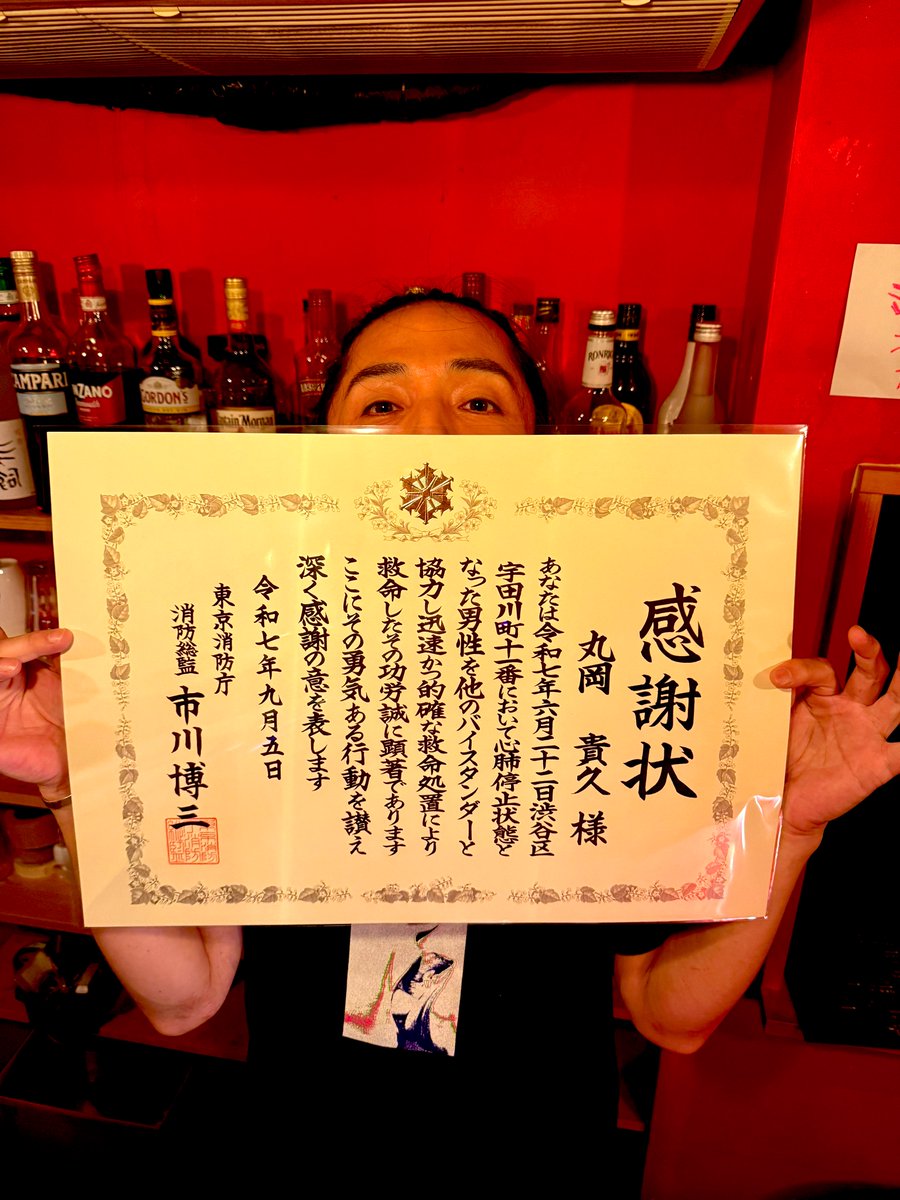 感謝状
丸岡 貴久 様
あなたは令和七年六月二十二日渋谷区
宇田川町十一番において心肺停止状態と
なった男性を他のバイスタンダーと
協力し迅速かつ的確な救命処置により
救命したその功労誠に顕著であります
ここにその勇気ある行動を讃え
深く感謝の意を表します
令和七年九月五日
東京消防庁
消防総監 市川博三
AMPARI
GORDON'S
ptain Morgan
RONRI